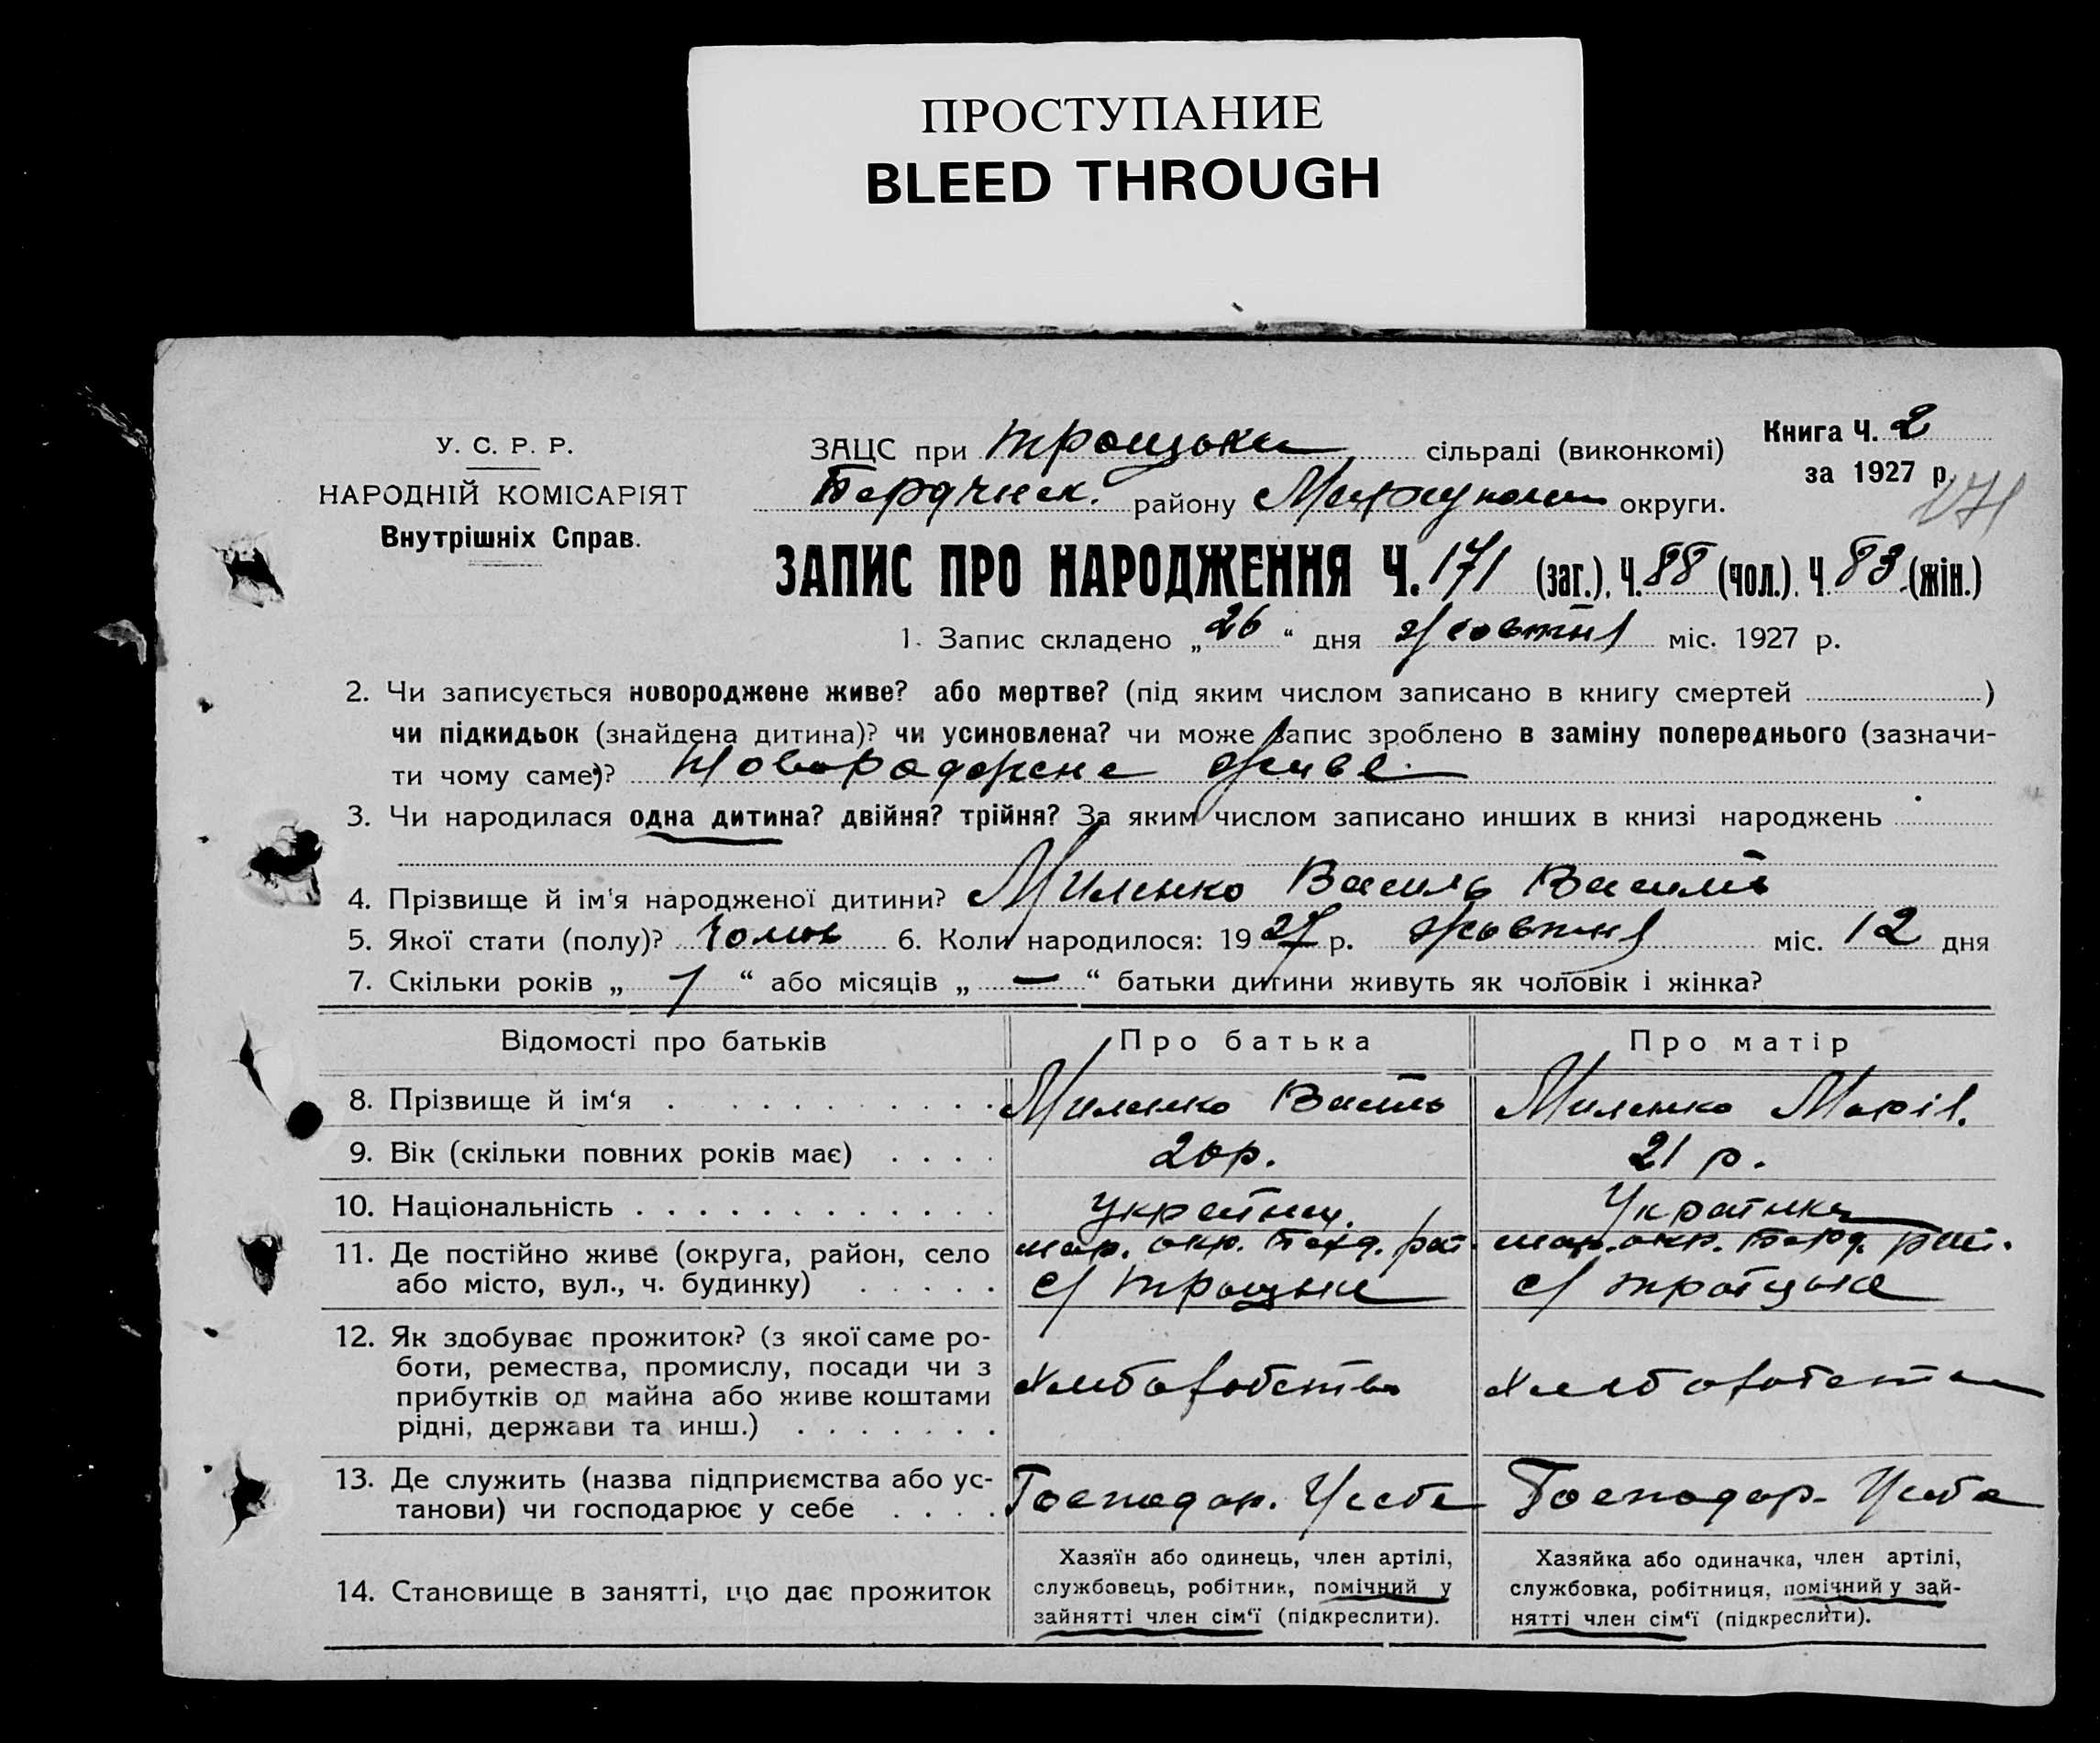 ПРОСТУПАНИЕ
BLEED THROUGH
У. С. Р. Р.
НАРОДНІЙ КОМІСАРІЯТ
Внутрішніх Справ.
ЗАЦС при Троицьки сільраді (виконкомі)
Книга Ч. 2
за 1927 р.
171
району округи.
ЗАПИС ПРО НАРОДЖЕННЯ Ч. 171 (заг.). Ч. 88 (чол.). Ч 83 (жін.)
1. Запис складено „26“ дня жовтня міс. 1927 р.
2. Чи записується новороджене живе? або мертве? (під яким числом записано в книгу смертей )
чи підкидьок (знайдена дитина)? чи усиновлена? чи може запис зроблено в заміну попереднього (зазначи-
ти чому саме)? Новорождене живе.
3. Чи народилася одна дитина? двійня? трійня? За яким числом записано инших в книзі народжень
4. Прізвище й ім'я народженої дитини? Миленко Василь
5. Якої стати (полу)? 6. Коли народилося: 1927 р. жовтня міс. 12 дня
7. Скільки років „ 1 “ або місяців „ — “ батьки дитини живуть як чоловік і жінка?
Відомості про батьків Про батька Про матір
8. Прізвище й ім‘я Миленко Миленко Марія.
9. Вік (скільки повних років має) 20 р. 21 р.
10. Національність Українец. Українка
11. Де постійно живе (округа, район, село мар. окр. мар. окр.
або місто, вул., ч. будинку) с/ Троицьке с/ Троїцьке
12. Як здобуває прожиток? (з якої саме ро-
боти, ремества, промислу, посади чи з
прибутків од майна або живе коштами
рідні, держави та инш.)
Хлеборобство
13. Де служить (назва підприємства або ус-
танови) чи господарює у себе Господар. Усебе Господар. Усебе
14. Становище в занятті, що дає прожиток
Хазяїн або одинець, член артілі,
службовець, робітник, помічний у
зайнятті член сім‘ї (підкреслити).
Хазяйка або одиначка, член артілі,
службовка, робітниця, помічний у зай-
нятті член сім‘ї (підкреслити).